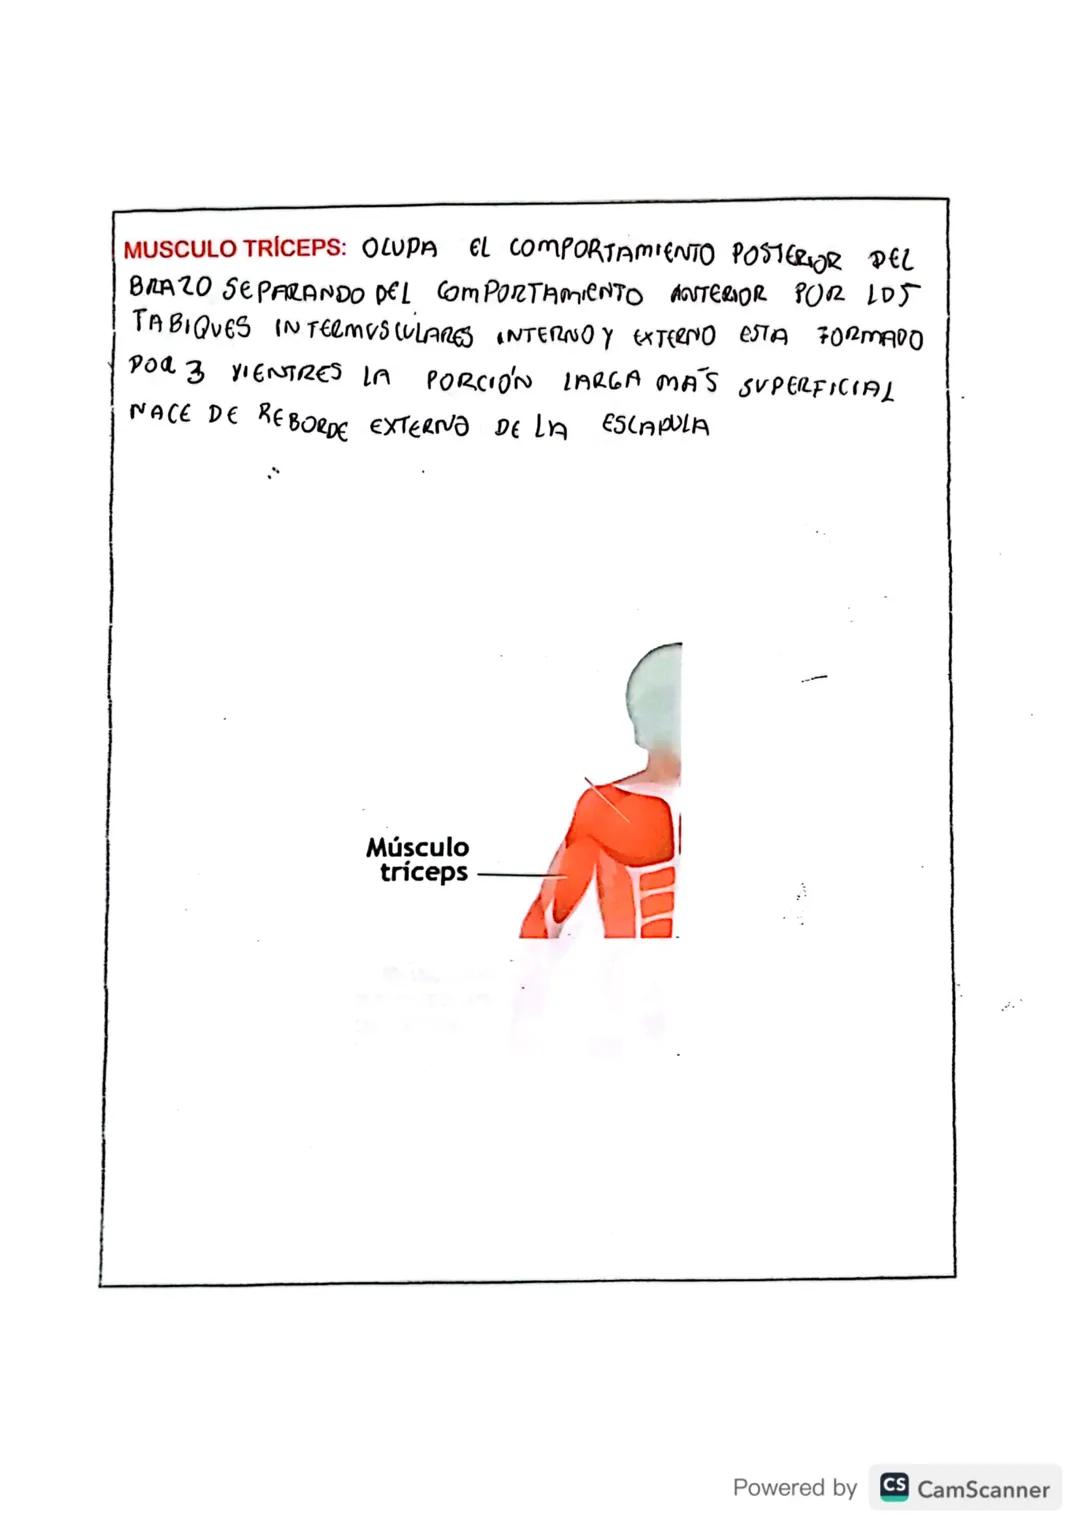 MUSCULO TRÍCEPS: OCUPA EL COMPORTAMIENTO POSTERIOR DEL
BRAZO SEPARANDO DEL COMPORTAMIENTO ANTERIOR POR LOS
TABIQUES INTERMUSCULARES INTERNO Y EXTERNO ESTA FORMADO
POR 3 VIENTRES LA PORCIÓN LARGA MAS SUPERFICIAL
NACE DE REBORDE EXTERNO DE LA ESCAPULA
Músculo
tríceps
Powered by CS CamScanner